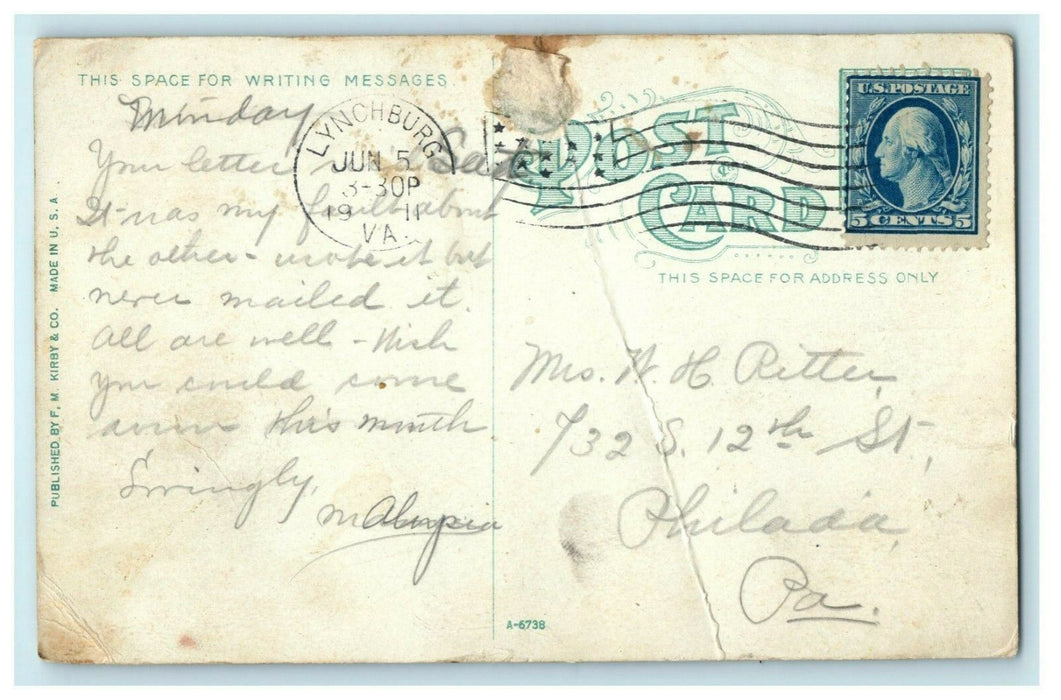 THIS SPACE FOR WRITING MESSAGES
POST CARD
THIS SPACE FOR ADDRESS ONLY
U.S. POSTAGE
5 CENTS 5
LYNCHBURG
JUN 5
3-30P
19 11
VA.
Your letter Sat
It was my fault about
the other - wrote it but
never mailed it.
All are well - Wish
you could come
this month
Mrs. W. H. Ritter,
732 S. 12th St,
Philada
Pa.
PUBLISHED BY F. M. KIRBY & CO. MADE IN U. S. A.
A-6738